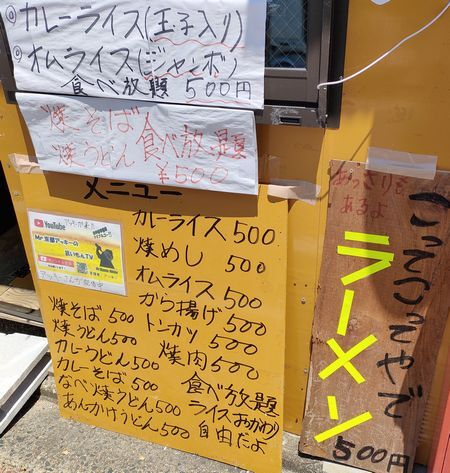 ◎カレーライス(王子入り)
◎オムライス(ジャンボ)
食べ放題 500円
焼そば食べ放題
焼うどん ¥500
メニュー
YouTube
Mr.京都アッキーの
旨いもんTV
カレーライス 500
焼めし 500
オムライス 500
から揚げ 500
トンカツ 500
焼肉 500
焼そば 500
焼うどん 500
カレーうどん 500
カレーそば 500
なべ焼うどん 500
あんかけうどん 500
食べ放題
ライスおかわり
自由だよ
あっさりも
あるよ
こってこってやで
ラーメン
500円